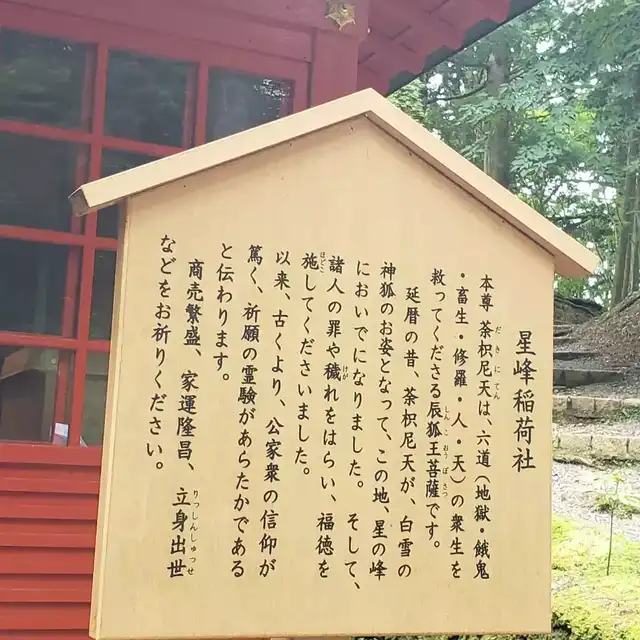 星峰稲荷社
本尊 荼枳尼天は、六道(地獄・餓鬼
・畜生・修羅・人・天)の衆生を
救ってくださる辰狐王菩薩です。
延暦の昔、荼枳尼天が、白雪の
神狐のお姿となって、この地、星の峰
においでになりました。そして、
諸人の罪や穢れをはらい、福徳を
施してくださいました。
以来、古くより、公家衆の信仰が
篤く、祈願の霊験があらたかである
と伝わります。
商売繁盛、家運隆昌、立身出世
などをお祈りください。